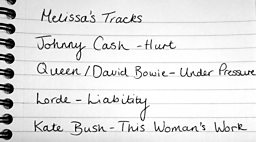 Melissa's Tracks
Johnny Cash - Hurt
Queen/David Bowie - Under Pressure
Lorde - Liability
Kate Bush - This Woman's Work